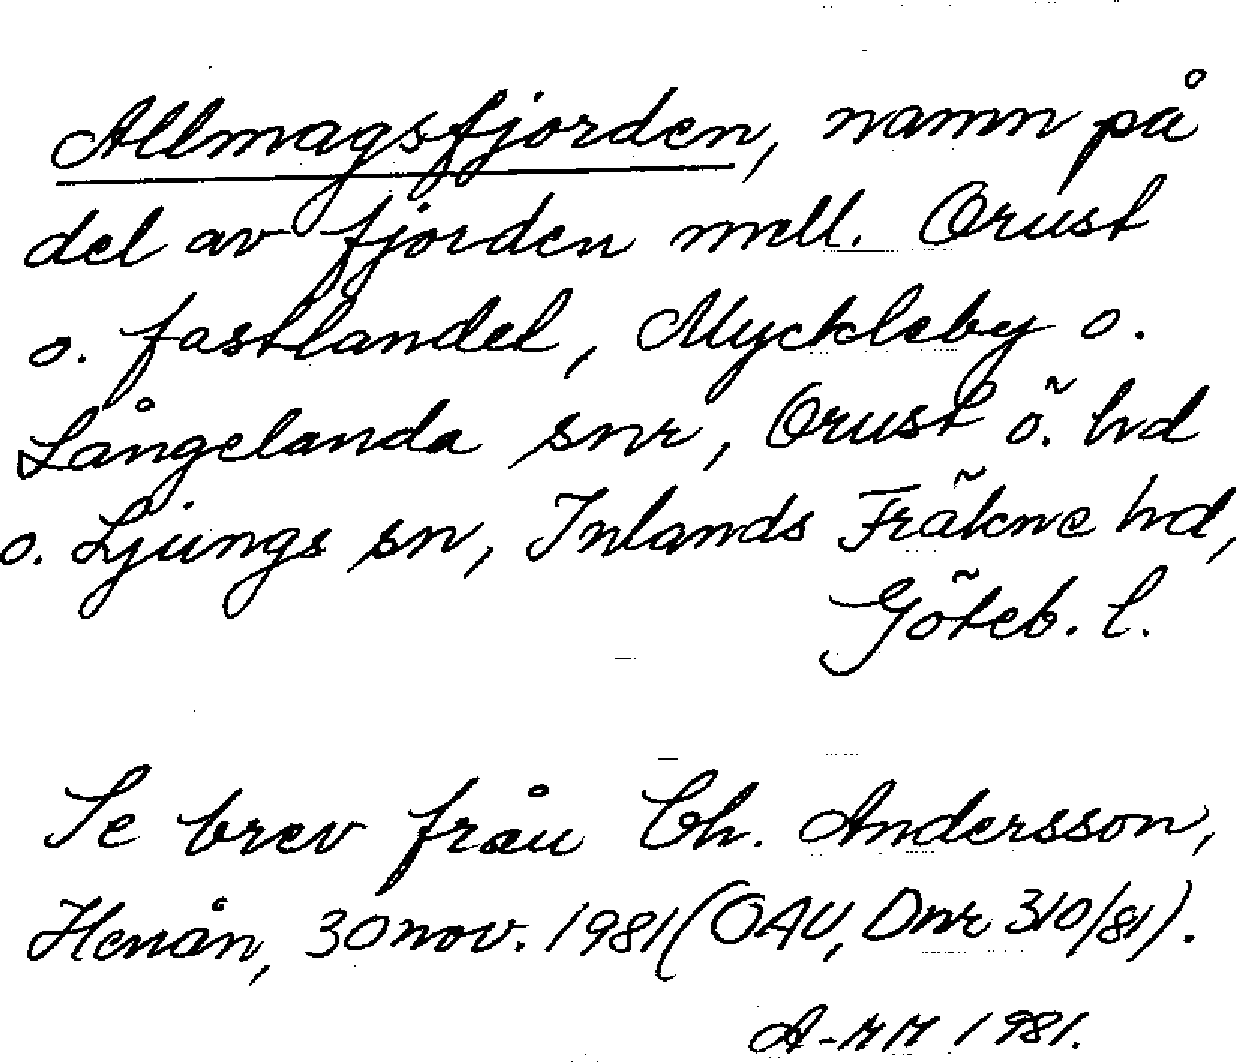 Allmagsfjorden, namn på
del av fjorden mell. Orust
o. fastlandet, Myckleby o.
Långelanda snr, Orust ö. hd
o. Ljungs sn, Inlands Fräkne hd,
Göteb. l.
Se brev från Ch. Andersson,
Henån, 30 nov. 1981 (OAU, Dnr 310/81).
A-MM 1981.